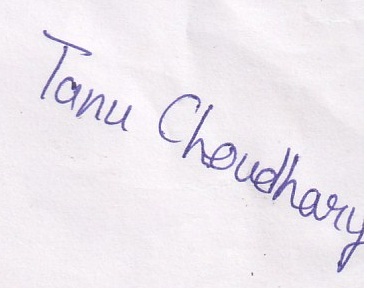 Tanu Choudhary